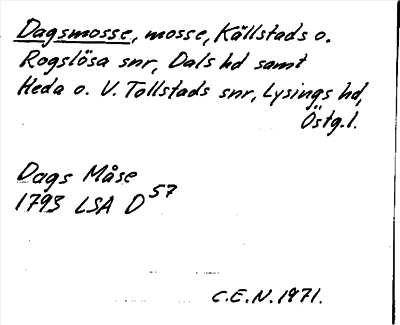 Dagsmosse, mosse, Källstads o.
Rogslösa snr, Dals hd samt
Heda o. V. Tollstads snr, Lysings hd,
Östg.l.
Dags Måse
1793 LSA D57
C.E.N. 1971.